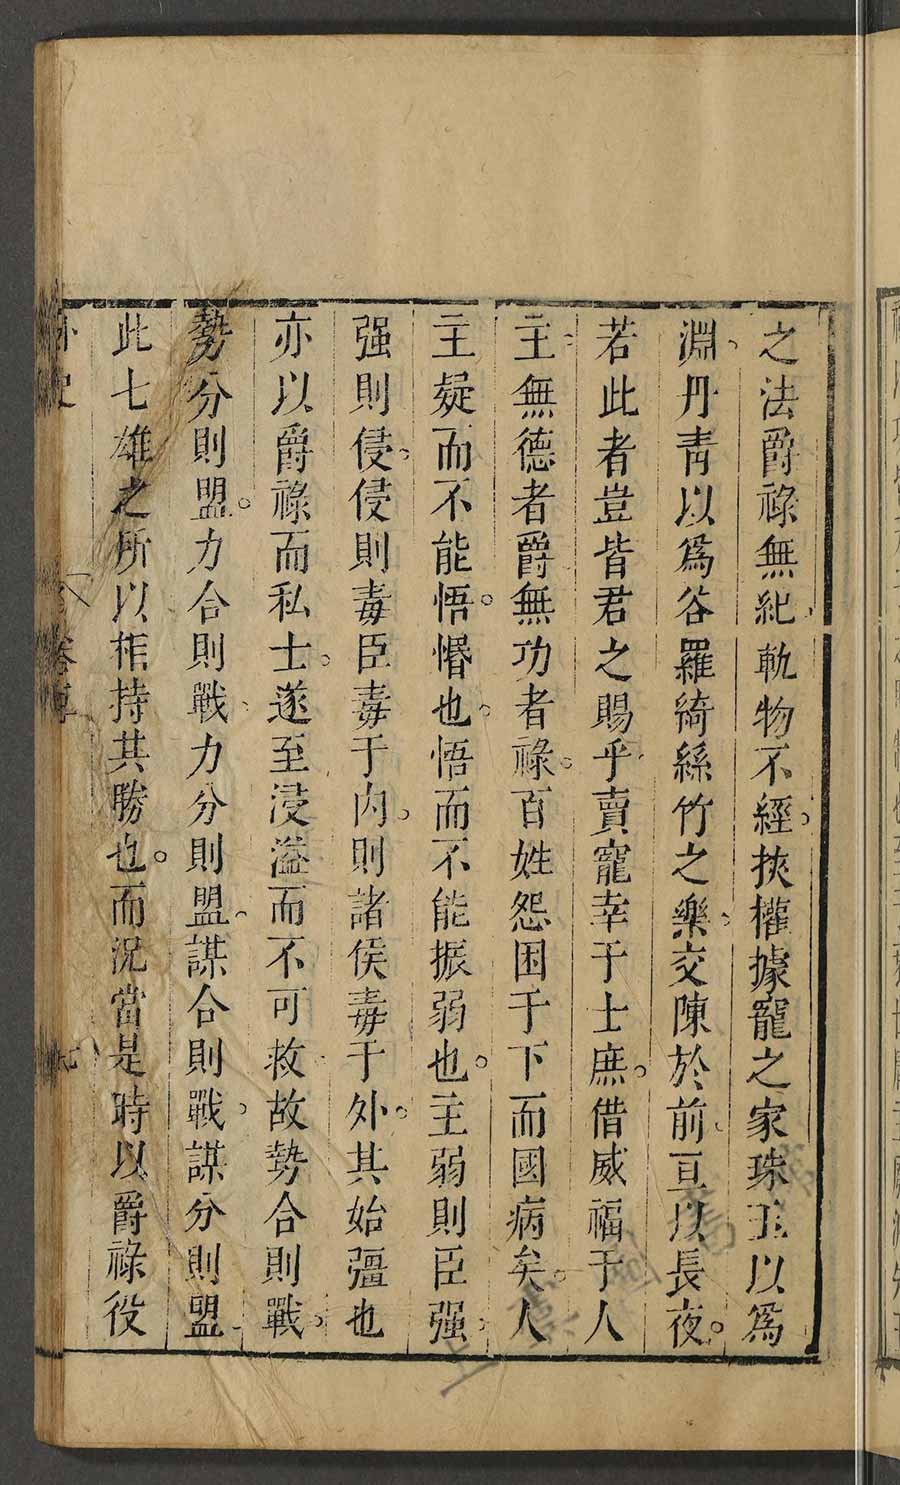 之法爵祿無紀軌物不經挾權據寵之家珠玉以爲
淵丹青以爲谷羅綺絲竹之樂交陳於前亘以長夜
若此者豈皆君之賜乎賣寵幸于士庶借威福于人
主無德者爵無功者祿百姓怨困于下而國病矣人
主疑而不能悟惛也悟而不能振弱也主弱則臣强
强則侵侵則毒臣毒于內則諸侯毒于外其始彊也
亦以爵祿而私士遂至浸溢而不可救故勢合則戰
勢分則盟力合則戰力分則盟謀合則戰謀分則盟
此七雄之所以栕持其勝也而況當是時以爵祿役
外史 卷 七